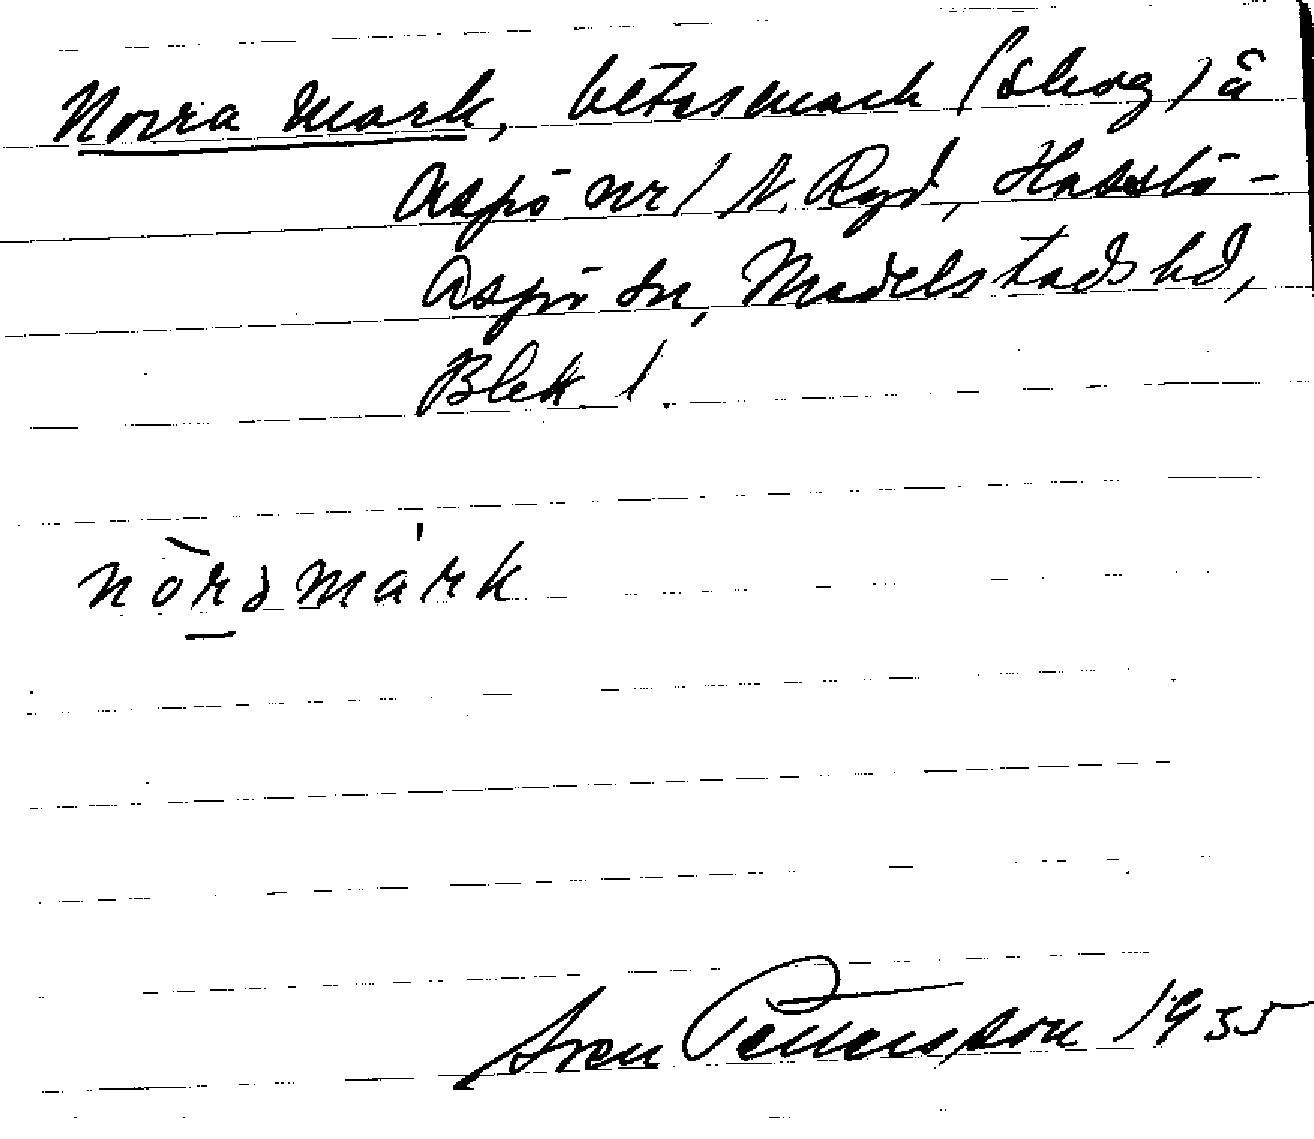 Norra Mark, betesmark (skog) å
Aspö nr 1 N. Ryd, Hasslö-
Aspö sn, Medelstads hd,
Blek l.
nòramárk
Sven Pettersson 1935